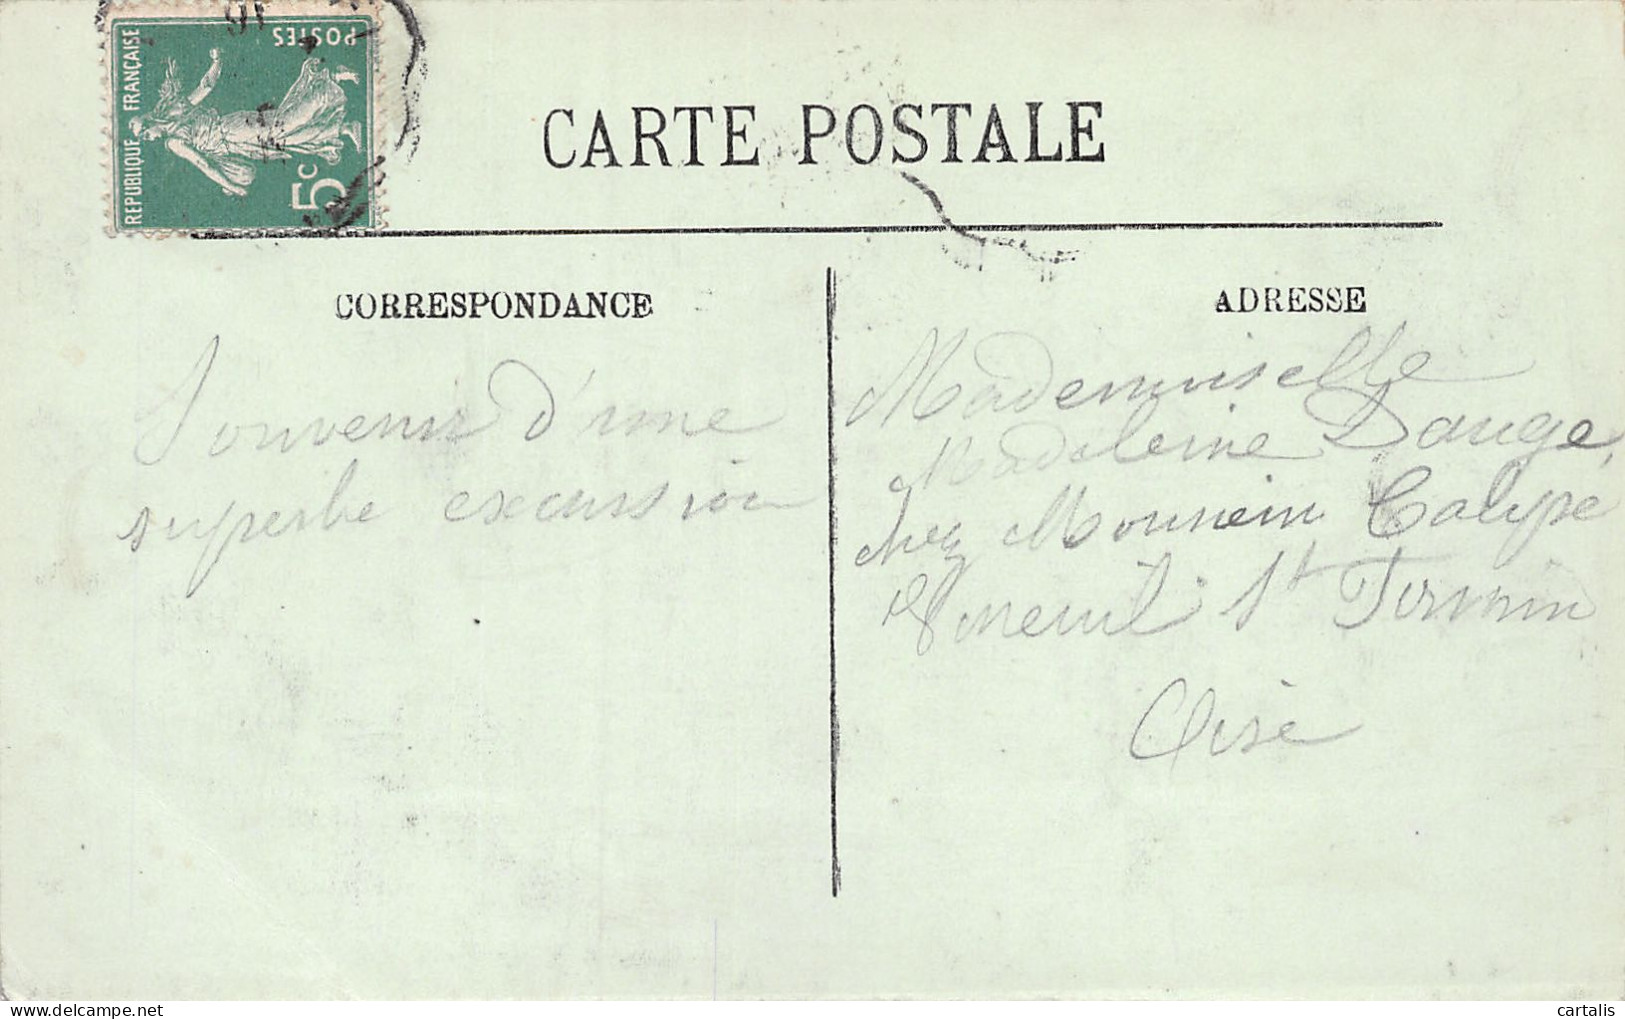 REPUBLIQUE FRANÇAISE
POSTES
5c
CARTE POSTALE
CORRESPONDANCE
Souvenir d'une
superbe excursion
ADRESSE
Mademoiselle
Madeleine Dauge,
chez Monsieur
Vineuil St Firmin
Oise
cartalis